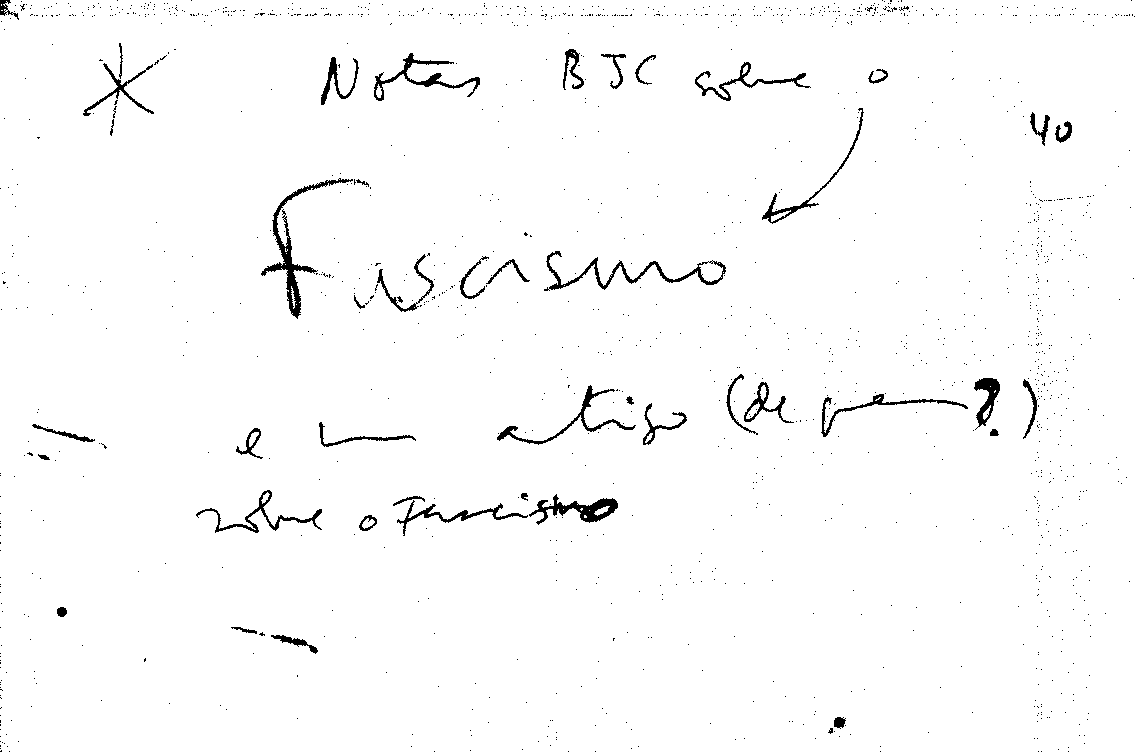 * Notas BJC sobre o
40
Fascismo
e um artigo (de quem?)
sobre o Fascismo